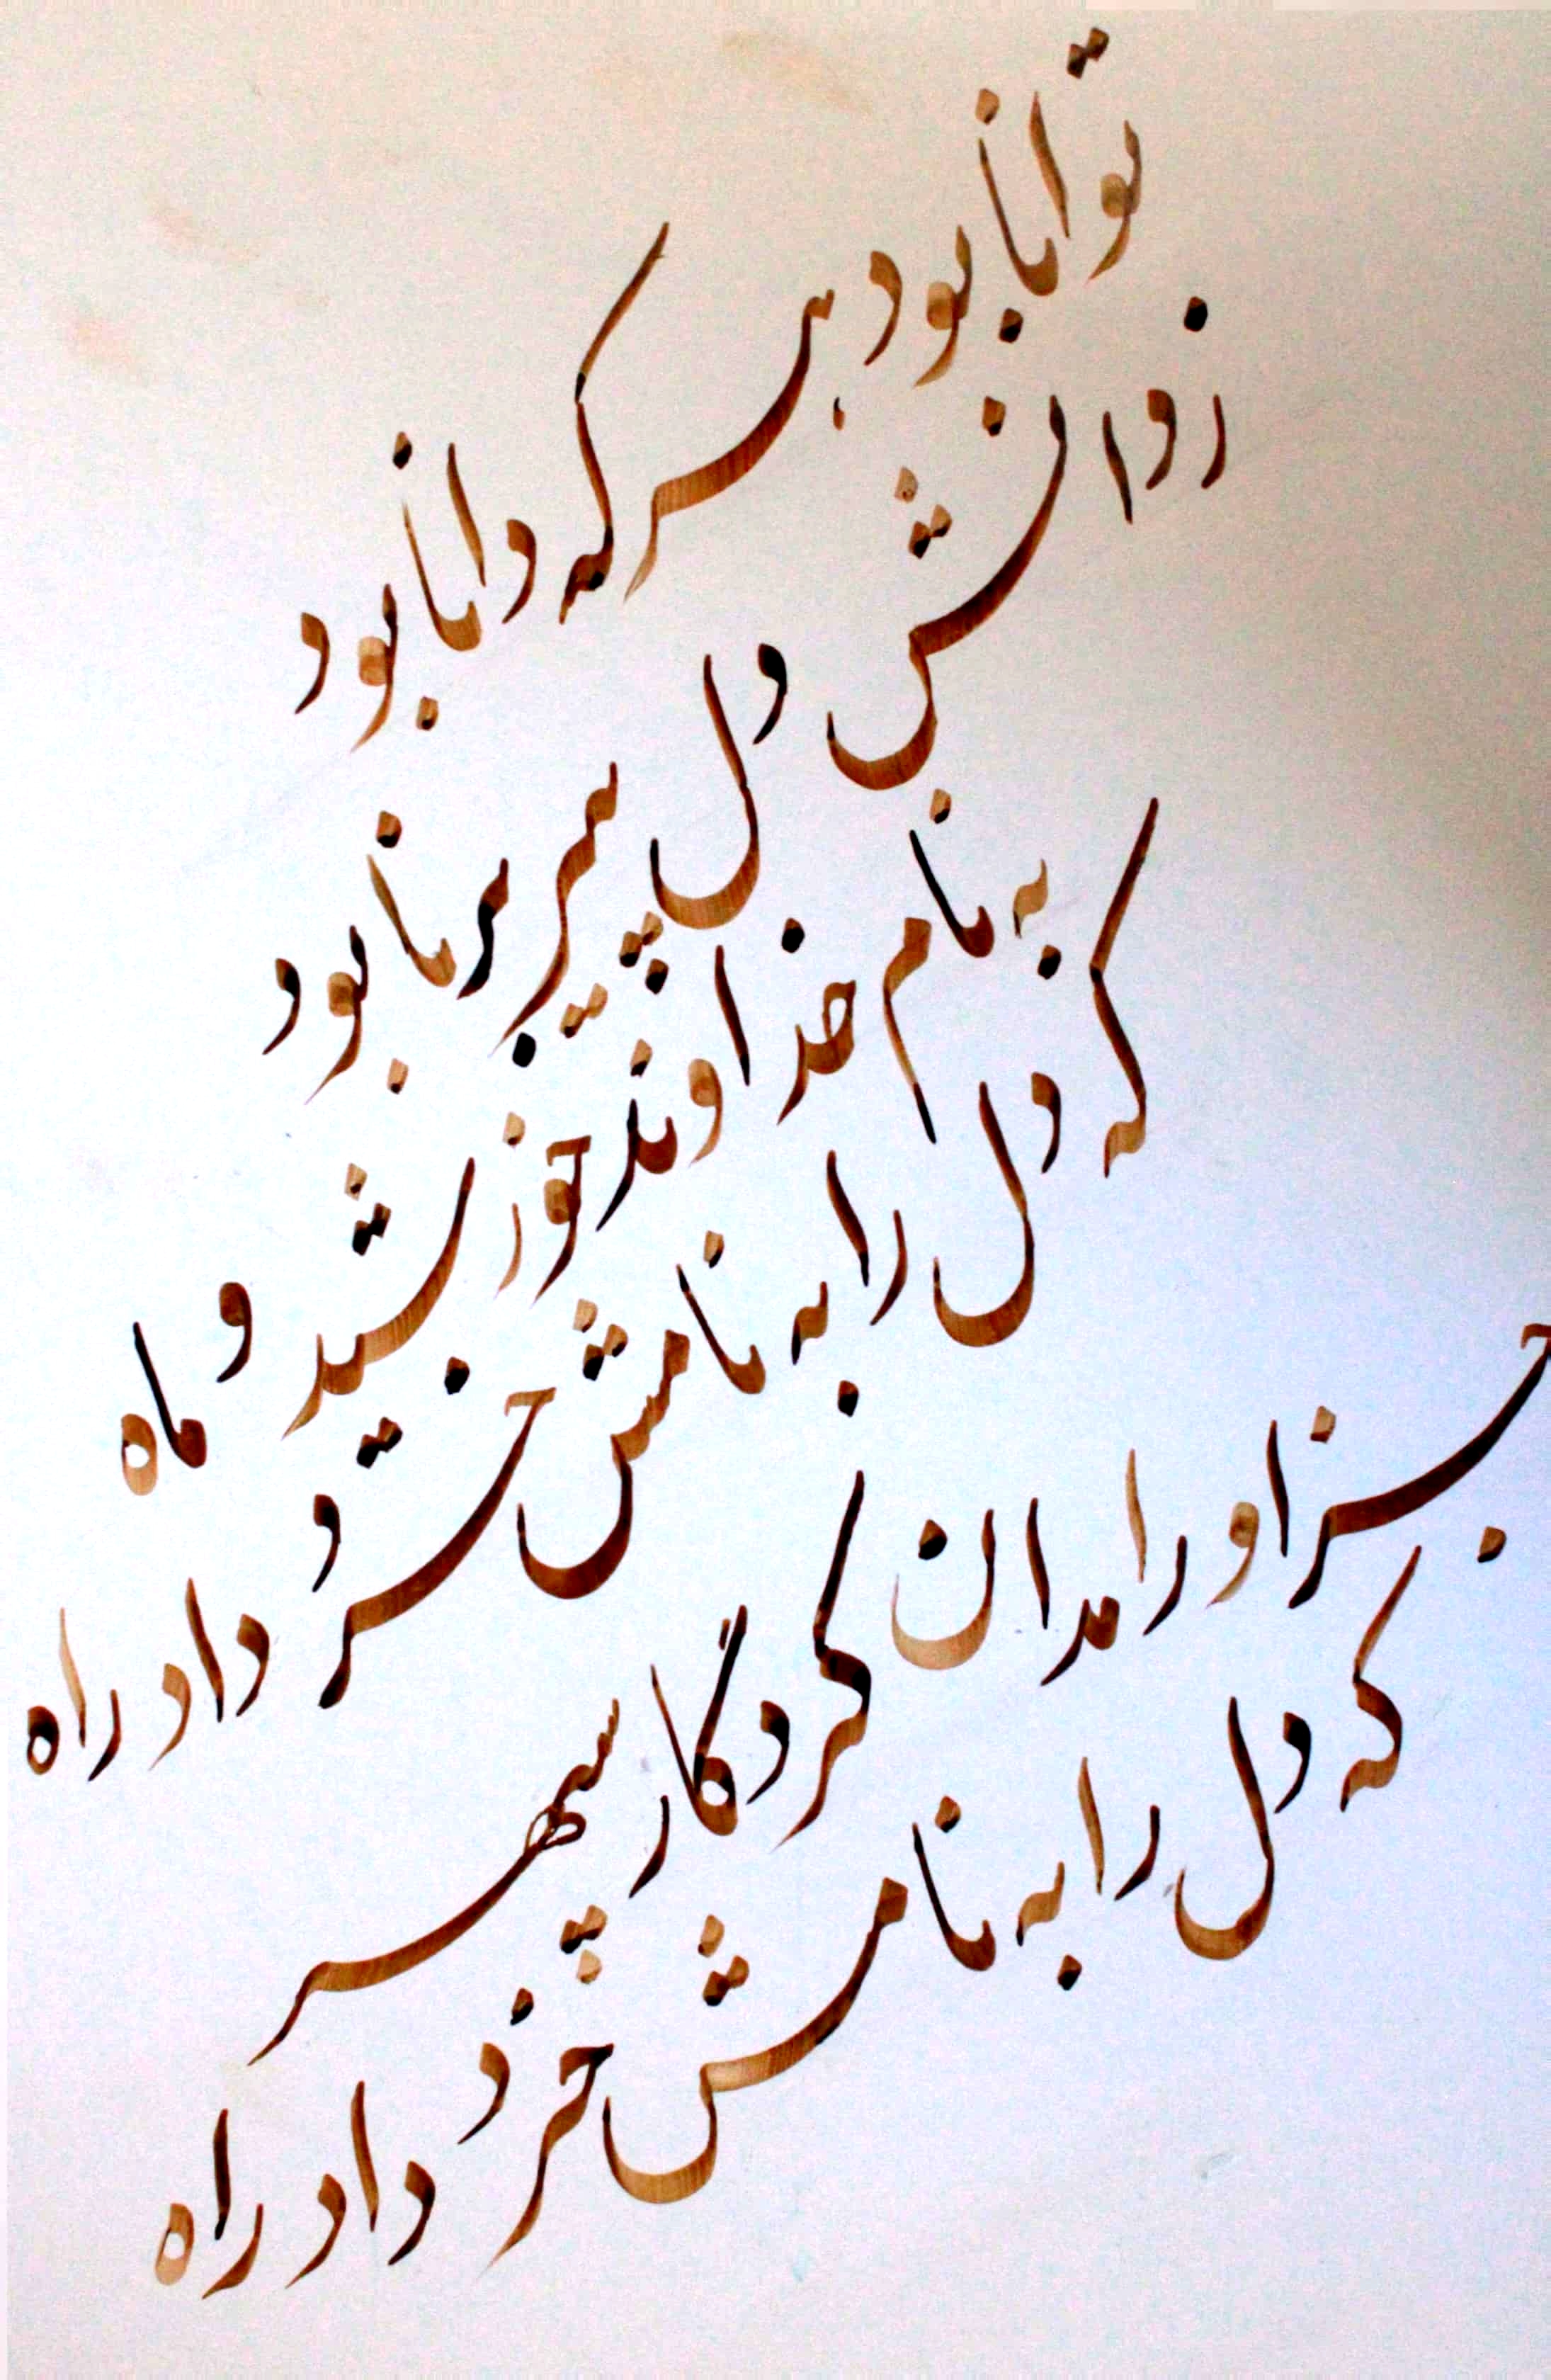 توانا بود هر که دانا بود
ز دانش دل پیر برنا بود
به نام خداوند خورشید و ماه
که دل را به نامش خرد داد راه
جز او را مدان کردگار سپهر
که دل را به نامش خرد داد راه